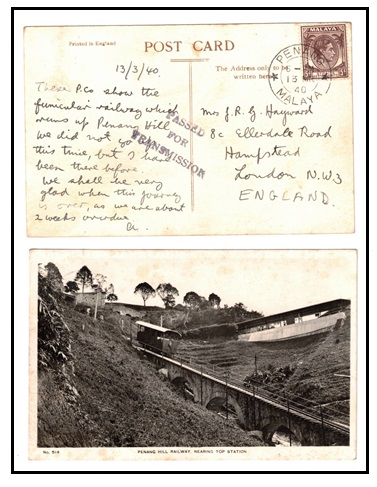 Printed in England
POST CARD
The Address only to be
written here
MALAYA
PENANG
13
40
MALAYA
13/3/40.
These P.Co show the
funicular railway which
runs up Penang Hill
We did not go
this time, but I have
been there before.
We shall be very
glad when this journey
is over, as we are about
2 weeks overdue
PASSED
FOR
TRANSMISSION
Mrs J. R. G. Hayward
8c Ellerdale Road
Hampstead
London N.W3
ENGLAND.
No. 514
PENANG HILL RAILWAY, NEARING TOP STATION.